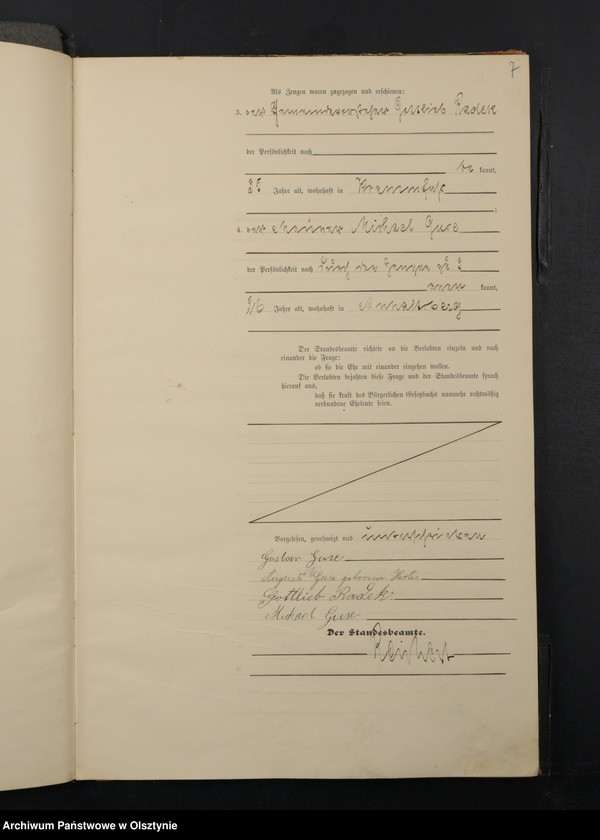 7
Als Zeugen waren zugezogen und erschienen:
3. der Gemeindevorsteher Gottlieb Radek
der Persönlichkeit nach
be kannt,
Jahre alt, wohnhaft in
4. der Michael Guse
der Persönlichkeit nach durch den Zeugen zu 3
aner kannt,
Jahre alt, wohnhaft in
Der Standesbeamte richtete an die Verlobten einzeln und nach
einander die Frage:
ob sie die Ehe mit einander eingehen wollen.
Die Verlobten bejahten diese Frage und der Standesbeamte sprach
hierauf aus,
daß sie kraft des Bürgerlichen Gesetzbuchs nunmehr rechtmäßig
verbundene Eheleute seien.
Vorgelesen, genehmigt und unterschrieben
Gustav Guse
Auguste Guse geborene
Gottlieb Radek
Michael Guse
Der Standesbeamte.
Archiwum Państwowe w Olsztynie